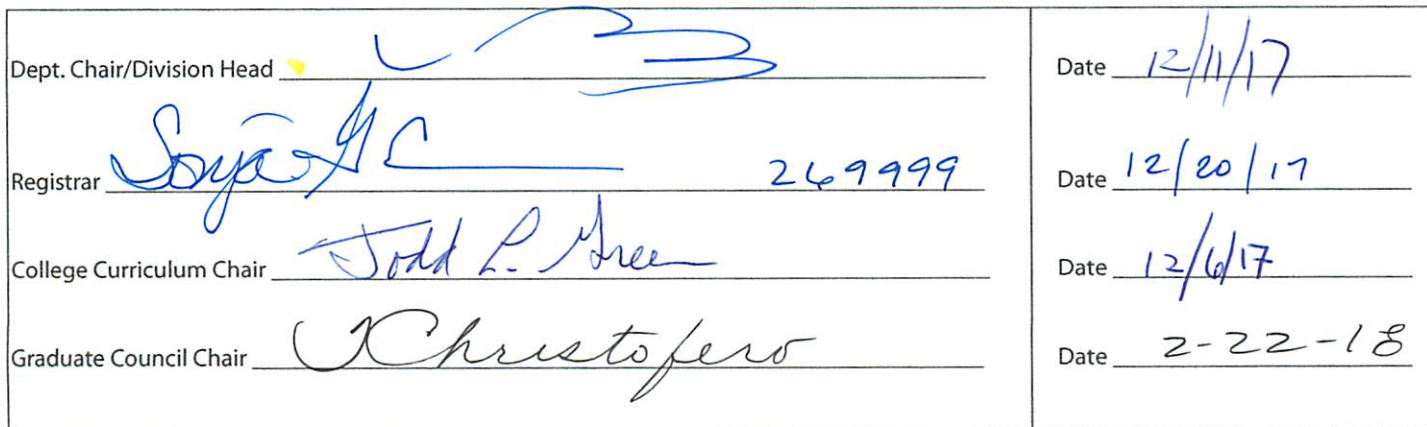 Dept. Chair/Division Head Date 12/11/17
Registrar Sonja G C 269999 Date 12/20/17
College Curriculum Chair Todd L. Green Date 12/6/17
Graduate Council Chair Christofero Date 2-22-18